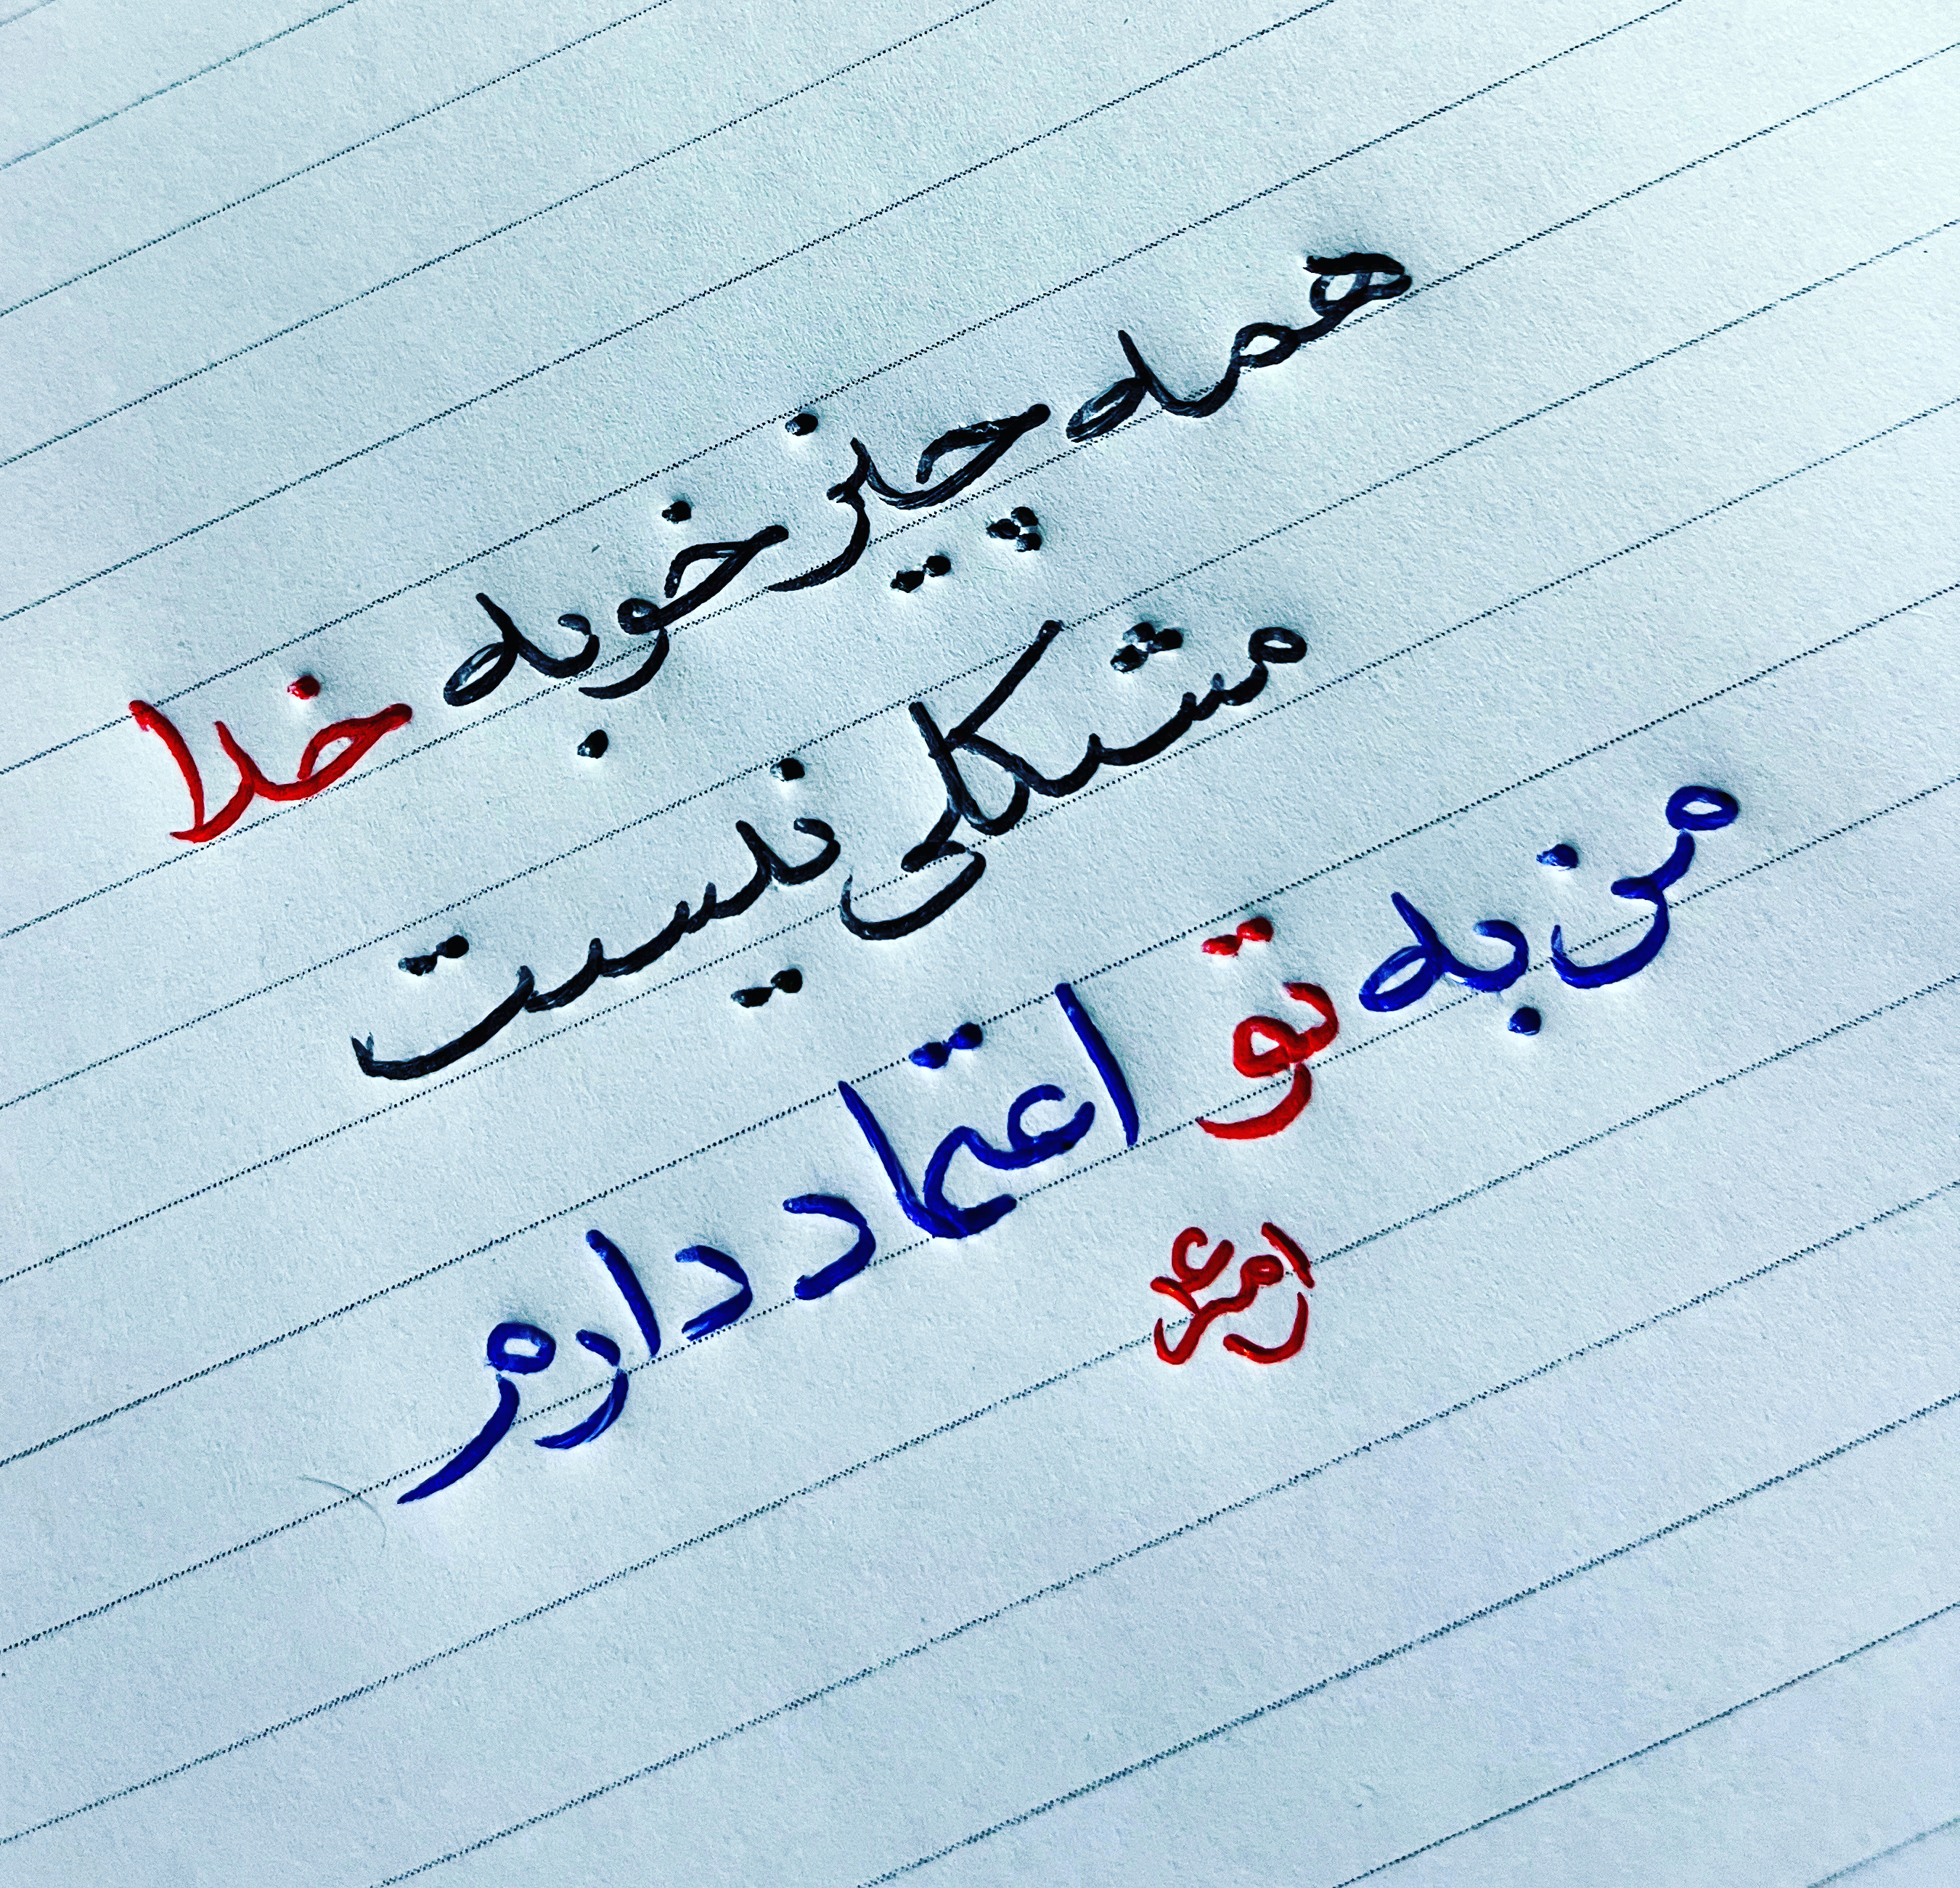 همه چیز خوبه خدا
مشکلی نیست
من به تو اعتماد دارم